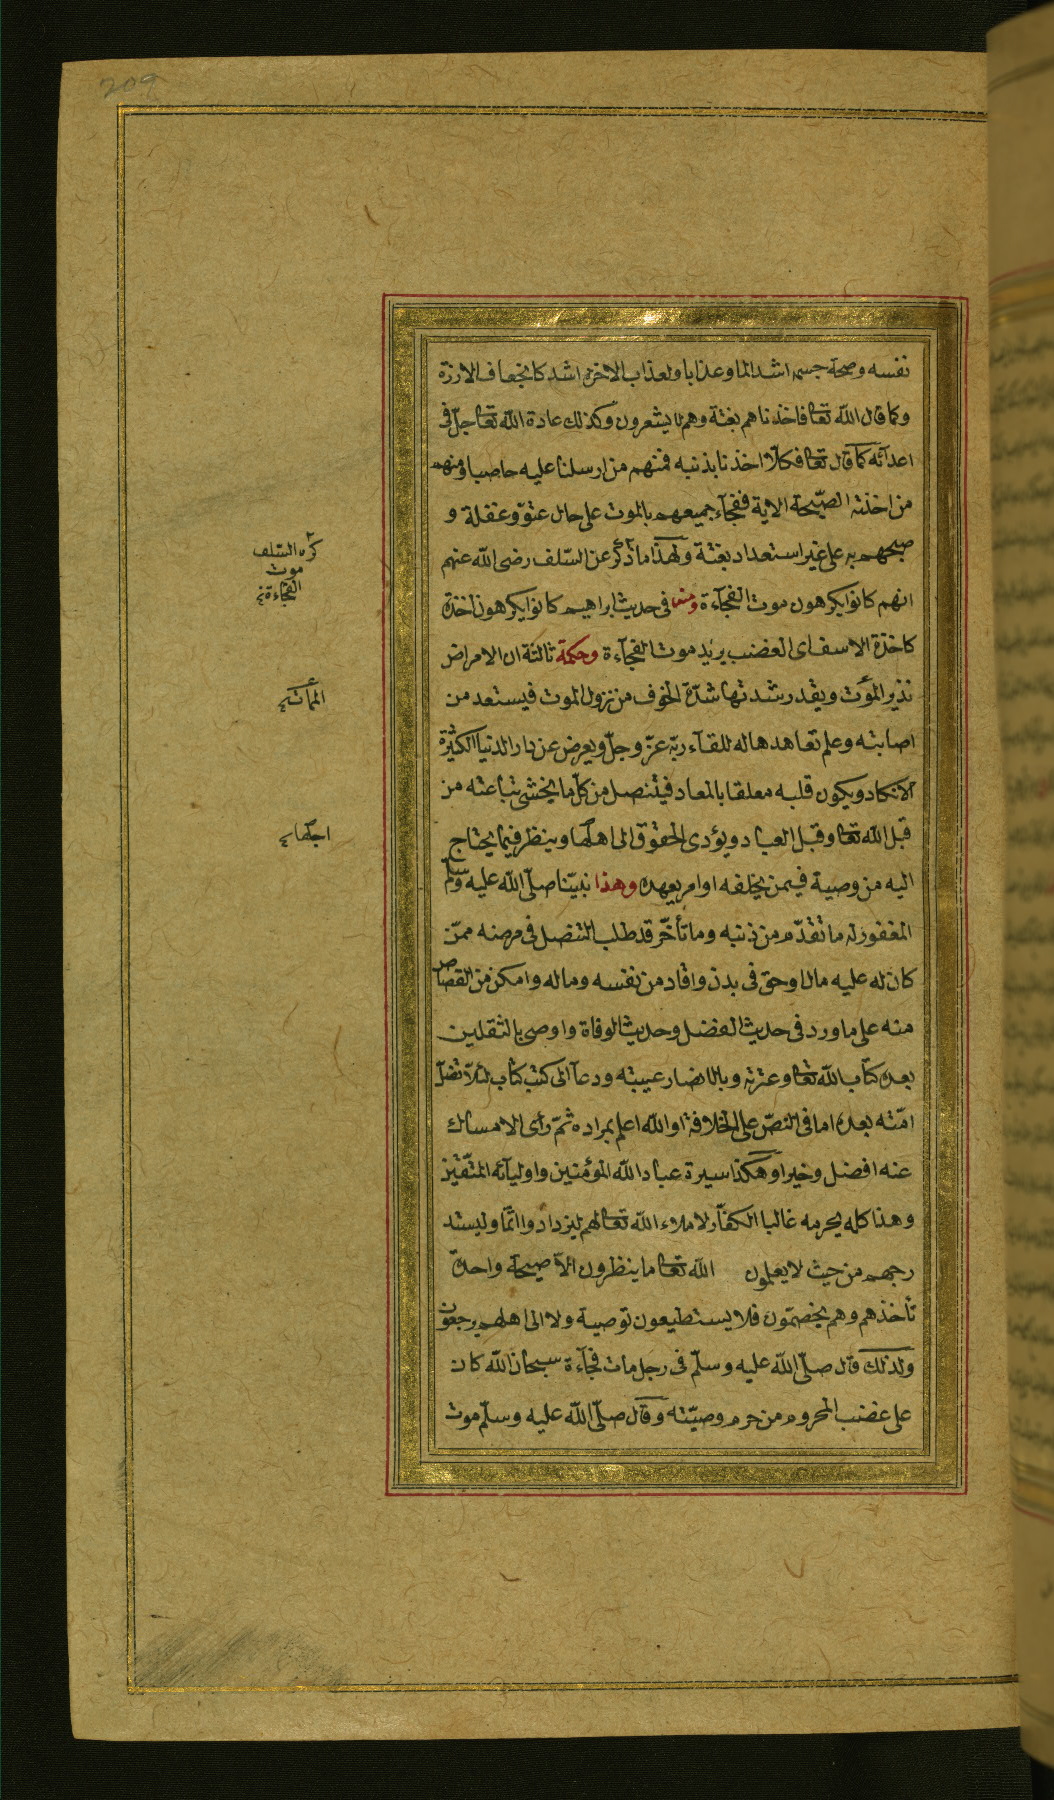 209
نفسه وصحة جسمه اشد الما وعذابا ولعذاب الاخرة اشد كانجعاف الارزة
وكما قال الله تعا فاخذناهم بغتة وهم لا يشعرون وكذلك عادة الله تعا جلّ فى
اعدآئه كما قال تعا فكلّا اخذنا بذنبه فمنهم من ارسلنا عليه حاصبا ومنهم
من اخذته الصّيحة الاية ففجآء جميعهم بالموت على حال عتوّ وغفلة و
صبحهم به على غير استعداد بغتة ولهذا ما ذكر عن السّلف رضى الله عنهم
انهم كانوا يكرهون موت الفجآءة ومنه فى حديث ابراهيم كانوا يكرهون اخذة
كاخذة الاسف اى الغضب يريد موت الفجآءة وحكمة ثالثة ان الامراض
نذير الموت وبقدر شدتها شدّة الخوف من نزول الموت فيستعد من
اصابته وعلم تعاهدها له للقآء ربّه عزّ وجلّ ويعرض عن دار الدنيا الكثيرة
الانكاد ويكون قلبه معلقا بالمعاد فيتنصل من كلّ ما يخشى تباعته من
قبل الله تعا وقبل العباد ويؤدى الحقوق الى اهلها وينظر فيما يحتاج
اليه من وصية فيمن يخلفه او امر يعهده وهذا نبيّنا صلّى الله عليه وسلّم
المغفور له ما تقدّم من ذنبه وما تأخّر قد طلب التنصل فى مرضه ممّن
كان له عليه مال او حق فى بدن واقاد من نفسه وماله وامكن من القصاص
منه على ما ورد فى حديث الفضل وحديث الوفاة واوصى بالثقلين
بعده كتاب الله تعا وعترته وبالانصار عيبته ودعآ الى كتب كتاب لئلا تضلّ
امّته بعده اما فى النصّ على الخلافة او الله اعلم بمراده ثمّ رأى الامساك
عنه افضل وخيرا وهكذا سيرة عباد الله المؤمنين واوليآئه المتّقين
وهذا كله يحرمه غالبا الكفّار لاملاء الله تعا لهم ليزدادوا اثمًا وليستد
رجهم من حيث لا يعلمون الله تعا ما ينظرون الّا صيحة واحدة
تأخذهم وهم يخصّمون فلا يستطيعون توصية ولا الى اهلهم يرجعون
ولذلك قال صلّى الله عليه وسلّم فى رجل مات فجآءة سبحان الله كان
على غضب المحروم من حرم وصيّته وقال صلّى الله عليه وسلّم موت
كره السّلف
موت
الفجاءة